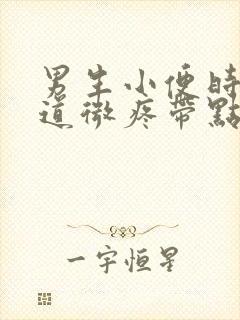 男生小便時
道微疼帶點
一宇恒星